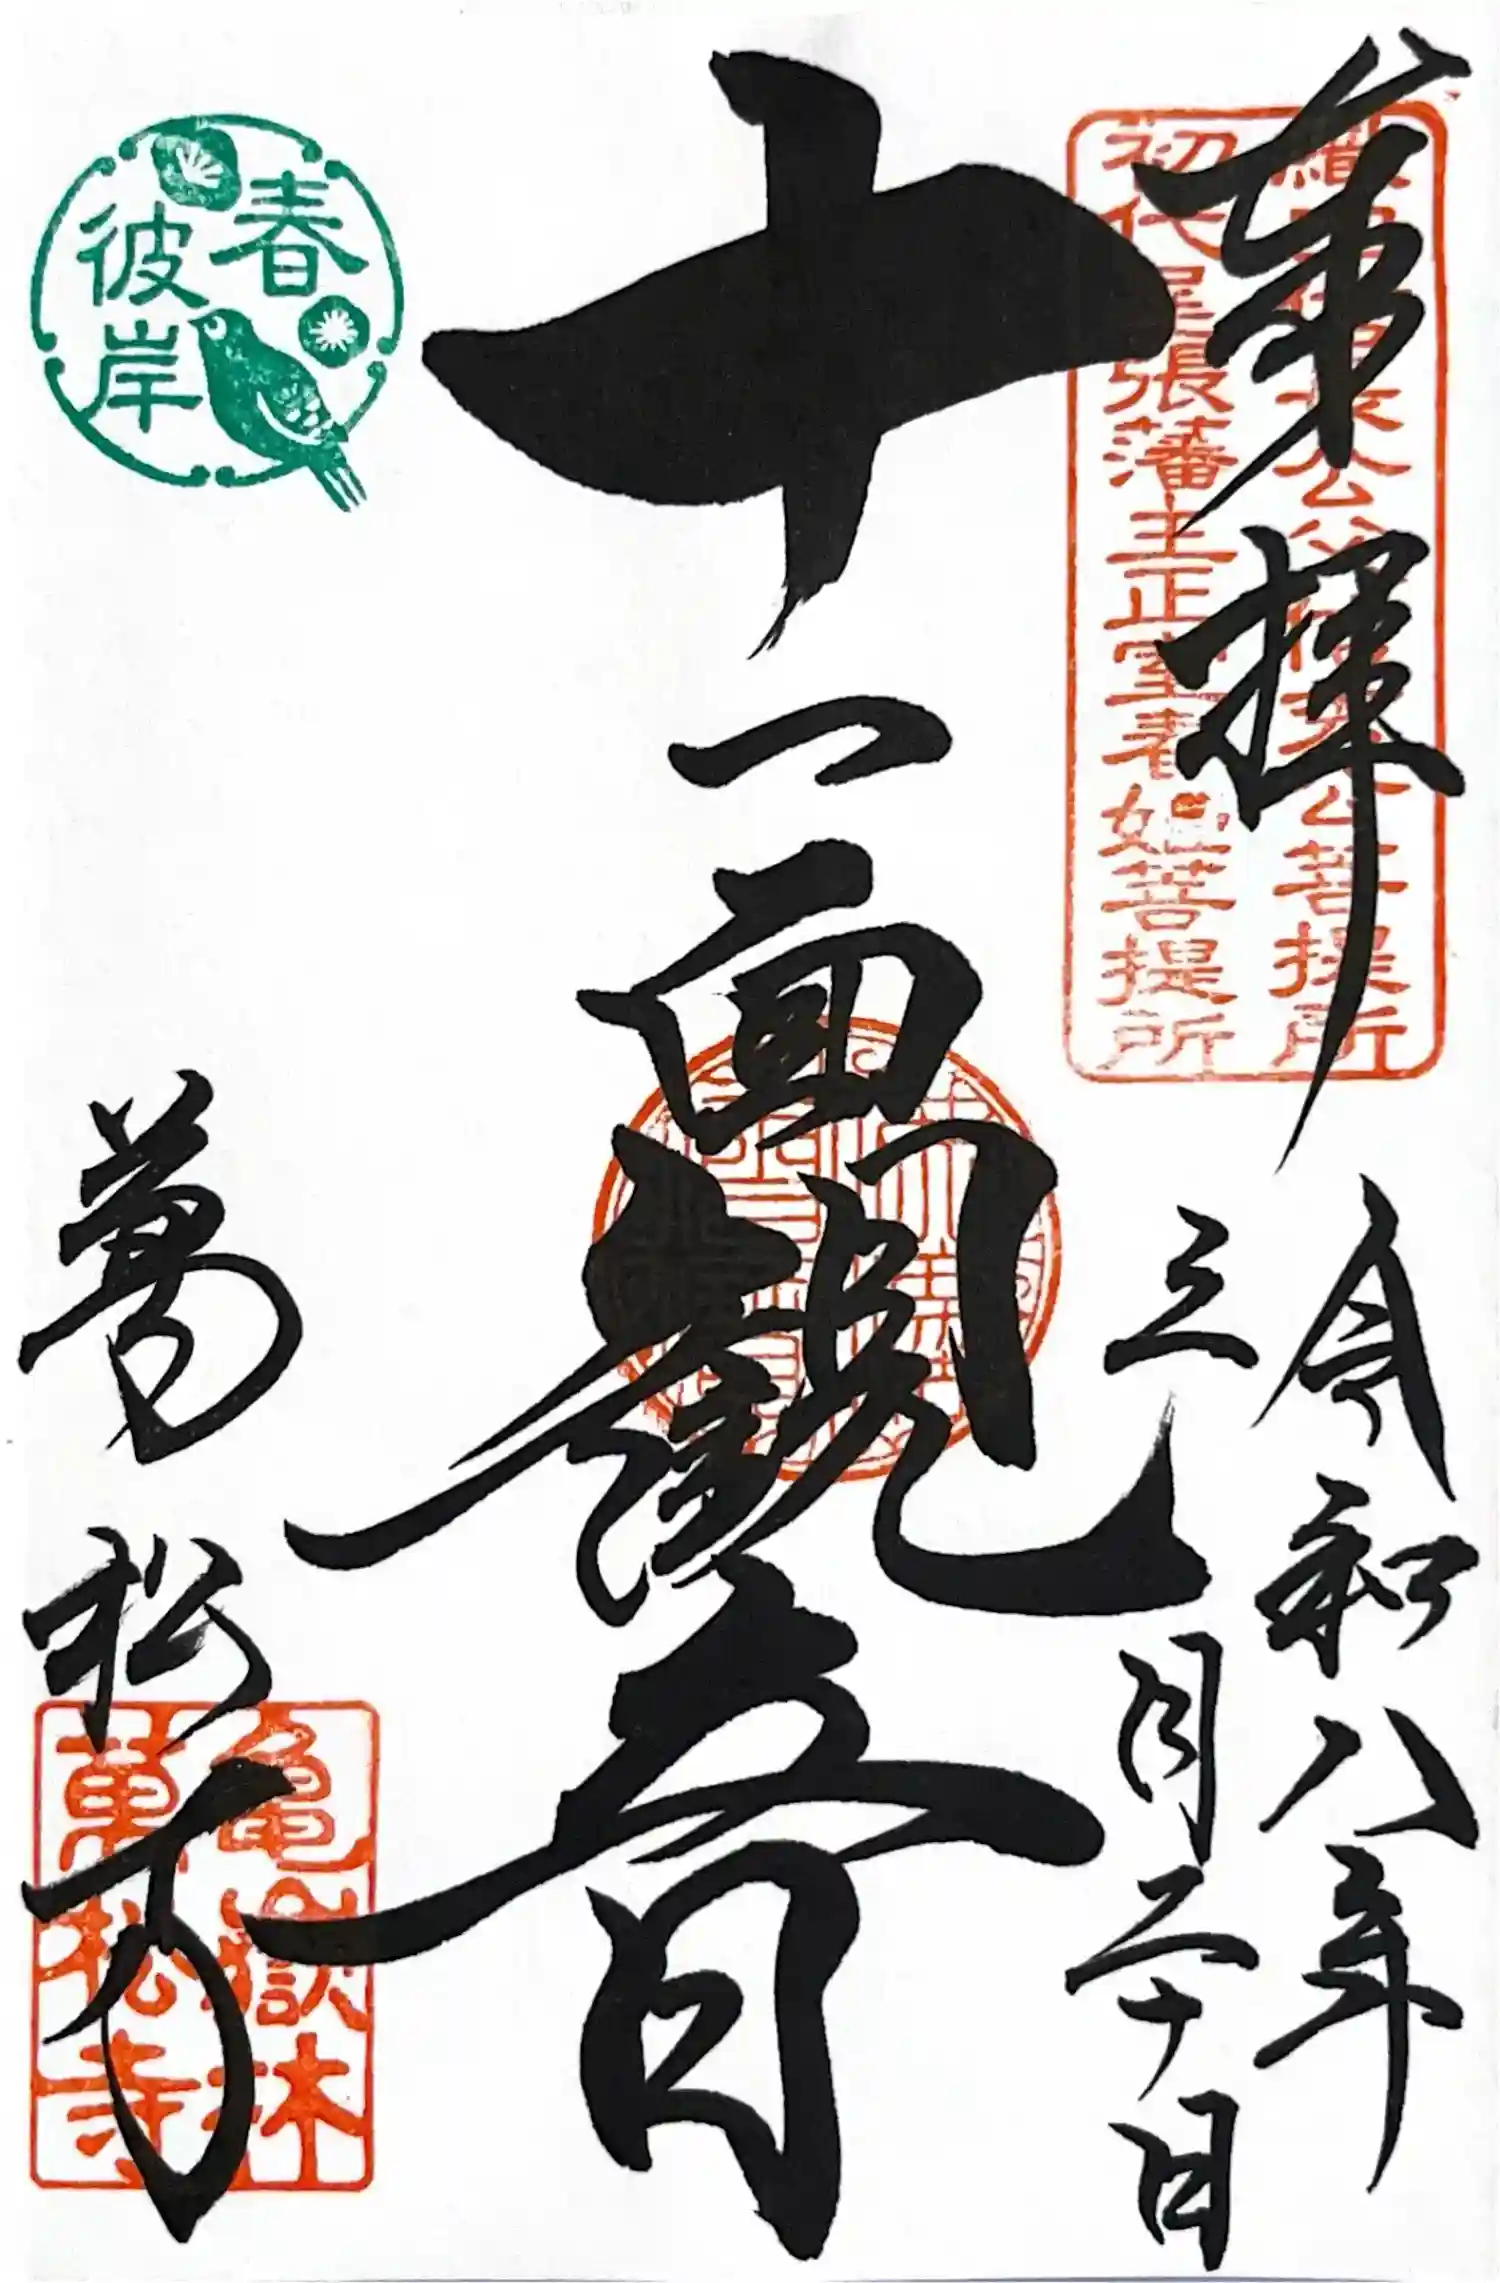 奉拝
織田信長公父信秀公菩提所
初代尾張藩主正室春姫菩提所
令和八年
三月二十日
十一面観世音
春
彼岸
萬松寺
亀嶽林
萬松寺